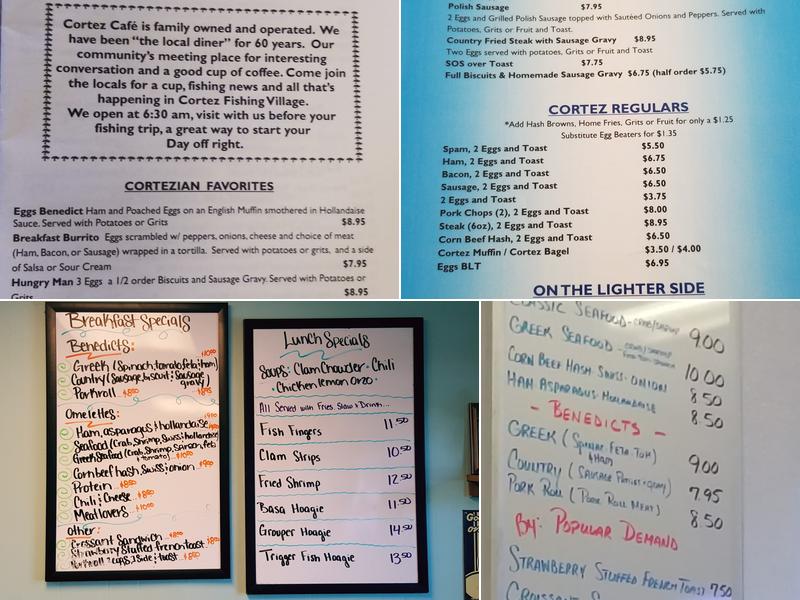 Cortez Café is family owned and operated. We
have been “the local diner” for 60 years. Our
community's meeting place for interesting
conversation and a good cup of coffee. Come join
the locals for a cup, fishing news and all that's
happening in Cortez Fishing Village.
We open at 6:30 am, visit with us before your
fishing trip, a great way to start your
Day off right.
CORTEZIAN FAVORITES
Eggs Benedict Ham and Poached Eggs on an English Muffin smothered in Hollandaise
Sauce. Served with Potatoes or Grits $8.95
Breakfast Burrito Eggs scrambled w/ peppers, onions, cheese and choice of meat
(Ham, Bacon, or Sausage) wrapped in a tortilla. Served with potatoes or grits, and a side
of Salsa or Sour Cream $7.95
Hungry Man 3 Eggs a 1/2 order Biscuits and Sausage Gravy. Served with Potatoes or
Grits $8.95
Polish Sausage $7.95
2 Eggs and Grilled Polish Sausage topped with Sautéed Onions and Peppers. Served with
Potatoes, Grits or Fruit and Toast.
Country Fried Steak with Sausage Gravy $8.95
Two Eggs served with potatoes, Grits or Fruit and Toast
SOS over Toast $7.75
Full Biscuits & Homemade Sausage Gravy $6.75 (half order $5.75)
CORTEZ REGULARS
*Add Hash Browns, Home Fries, Grits or Fruit for only a $1.25
Substitute Egg Beaters for $1.35
Spam, 2 Eggs and Toast $5.50
Ham, 2 Eggs and Toast $6.75
Bacon, 2 Eggs and Toast $6.50
Sausage, 2 Eggs and Toast $6.50
2 Eggs and Toast $3.75
Pork Chops (2), 2 Eggs and Toast $8.00
Steak (6oz), 2 Eggs and Toast $8.95
Corn Beef Hash, 2 Eggs and Toast $6.50
Cortez Muffin / Cortez Bagel $3.50 / $4.00
Eggs BLT $6.95
ON THE LIGHTER SIDE
Breakfast Specials
Benedicts:
Greek (Spinach, tomato, feta, ham) $10.00
Country (Sausage, biscuit & Sausage
gravy) $8.95
Porkroll $8.50
Omelettes:
Ham, asparagus & hollandaise
Seafood (Crab, Shrimp, Swiss & hollandaise)
Greek Seafood (Crab, Shrimp, feta
& tomato) $10.00
Cornbeef hash, swiss & onion
Protein
Chili & Cheese
Meatlovers $10.00
Other:
Croissant Sandwich
Strawberry Stuffed french toast
Lunch Specials
Soups: Clam Chowder • Chili
• Chicken lemon Orzo •
All Served with Fries, Slaw & Drink...
Fish Fingers 11.50
Clam Strips 10.50
Fried Shrimp 12.50
Basa Hoagie 11.50
Grouper Hoagie 14.50
Trigger Fish Hoagie 13.50
CLASSIC SEAFOOD - CRAB/SHRIMP 9.00
GREEK SEAFOOD 10.00
CORN BEEF HASH - SWISS - ONION 8.50
HAM ASPARAGUS HOLLANDAISE 8.50
- BENEDICTS -
GREEK (SPINACH FETA TOM
& HAM) 9.00
COUNTRY (SAUSAGE PATTIES + GRAVY) 7.95
PORK ROLL (PORK ROLL MEAT) 8.50
BY: POPULAR DEMAND
STRAWBERRY STUFFED FRENCH TOAST 7.50